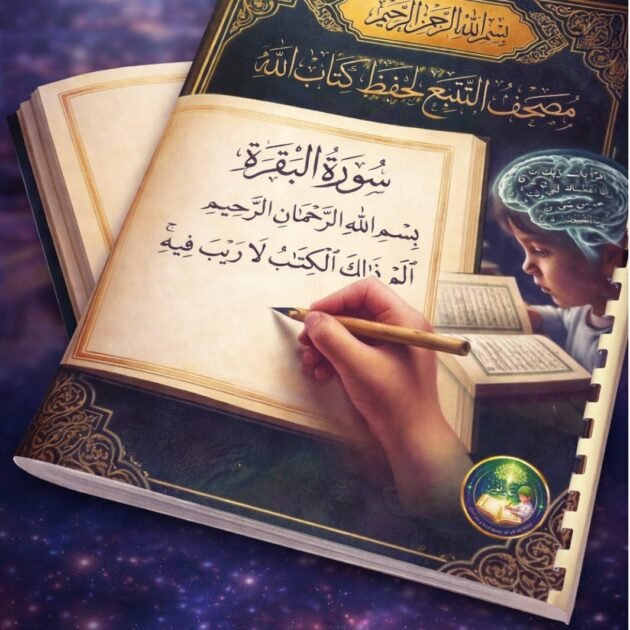 بِسْمِ اللَّهِ الرَّحْمَنِ الرَّحِيمِ
مُصْحَفُ التَّتَبُّعِ لِحِفْظِ كِتَابِ اللَّهِ
سُورَةُ الْبَقَرَةِ
بِسْمِ اللهِ الرَّحْمَانِ الرَّحِيمِ
الٓمٓ ذَٰلِكَ الْكِتَابُ لَا رَيْبَ فِيهِ